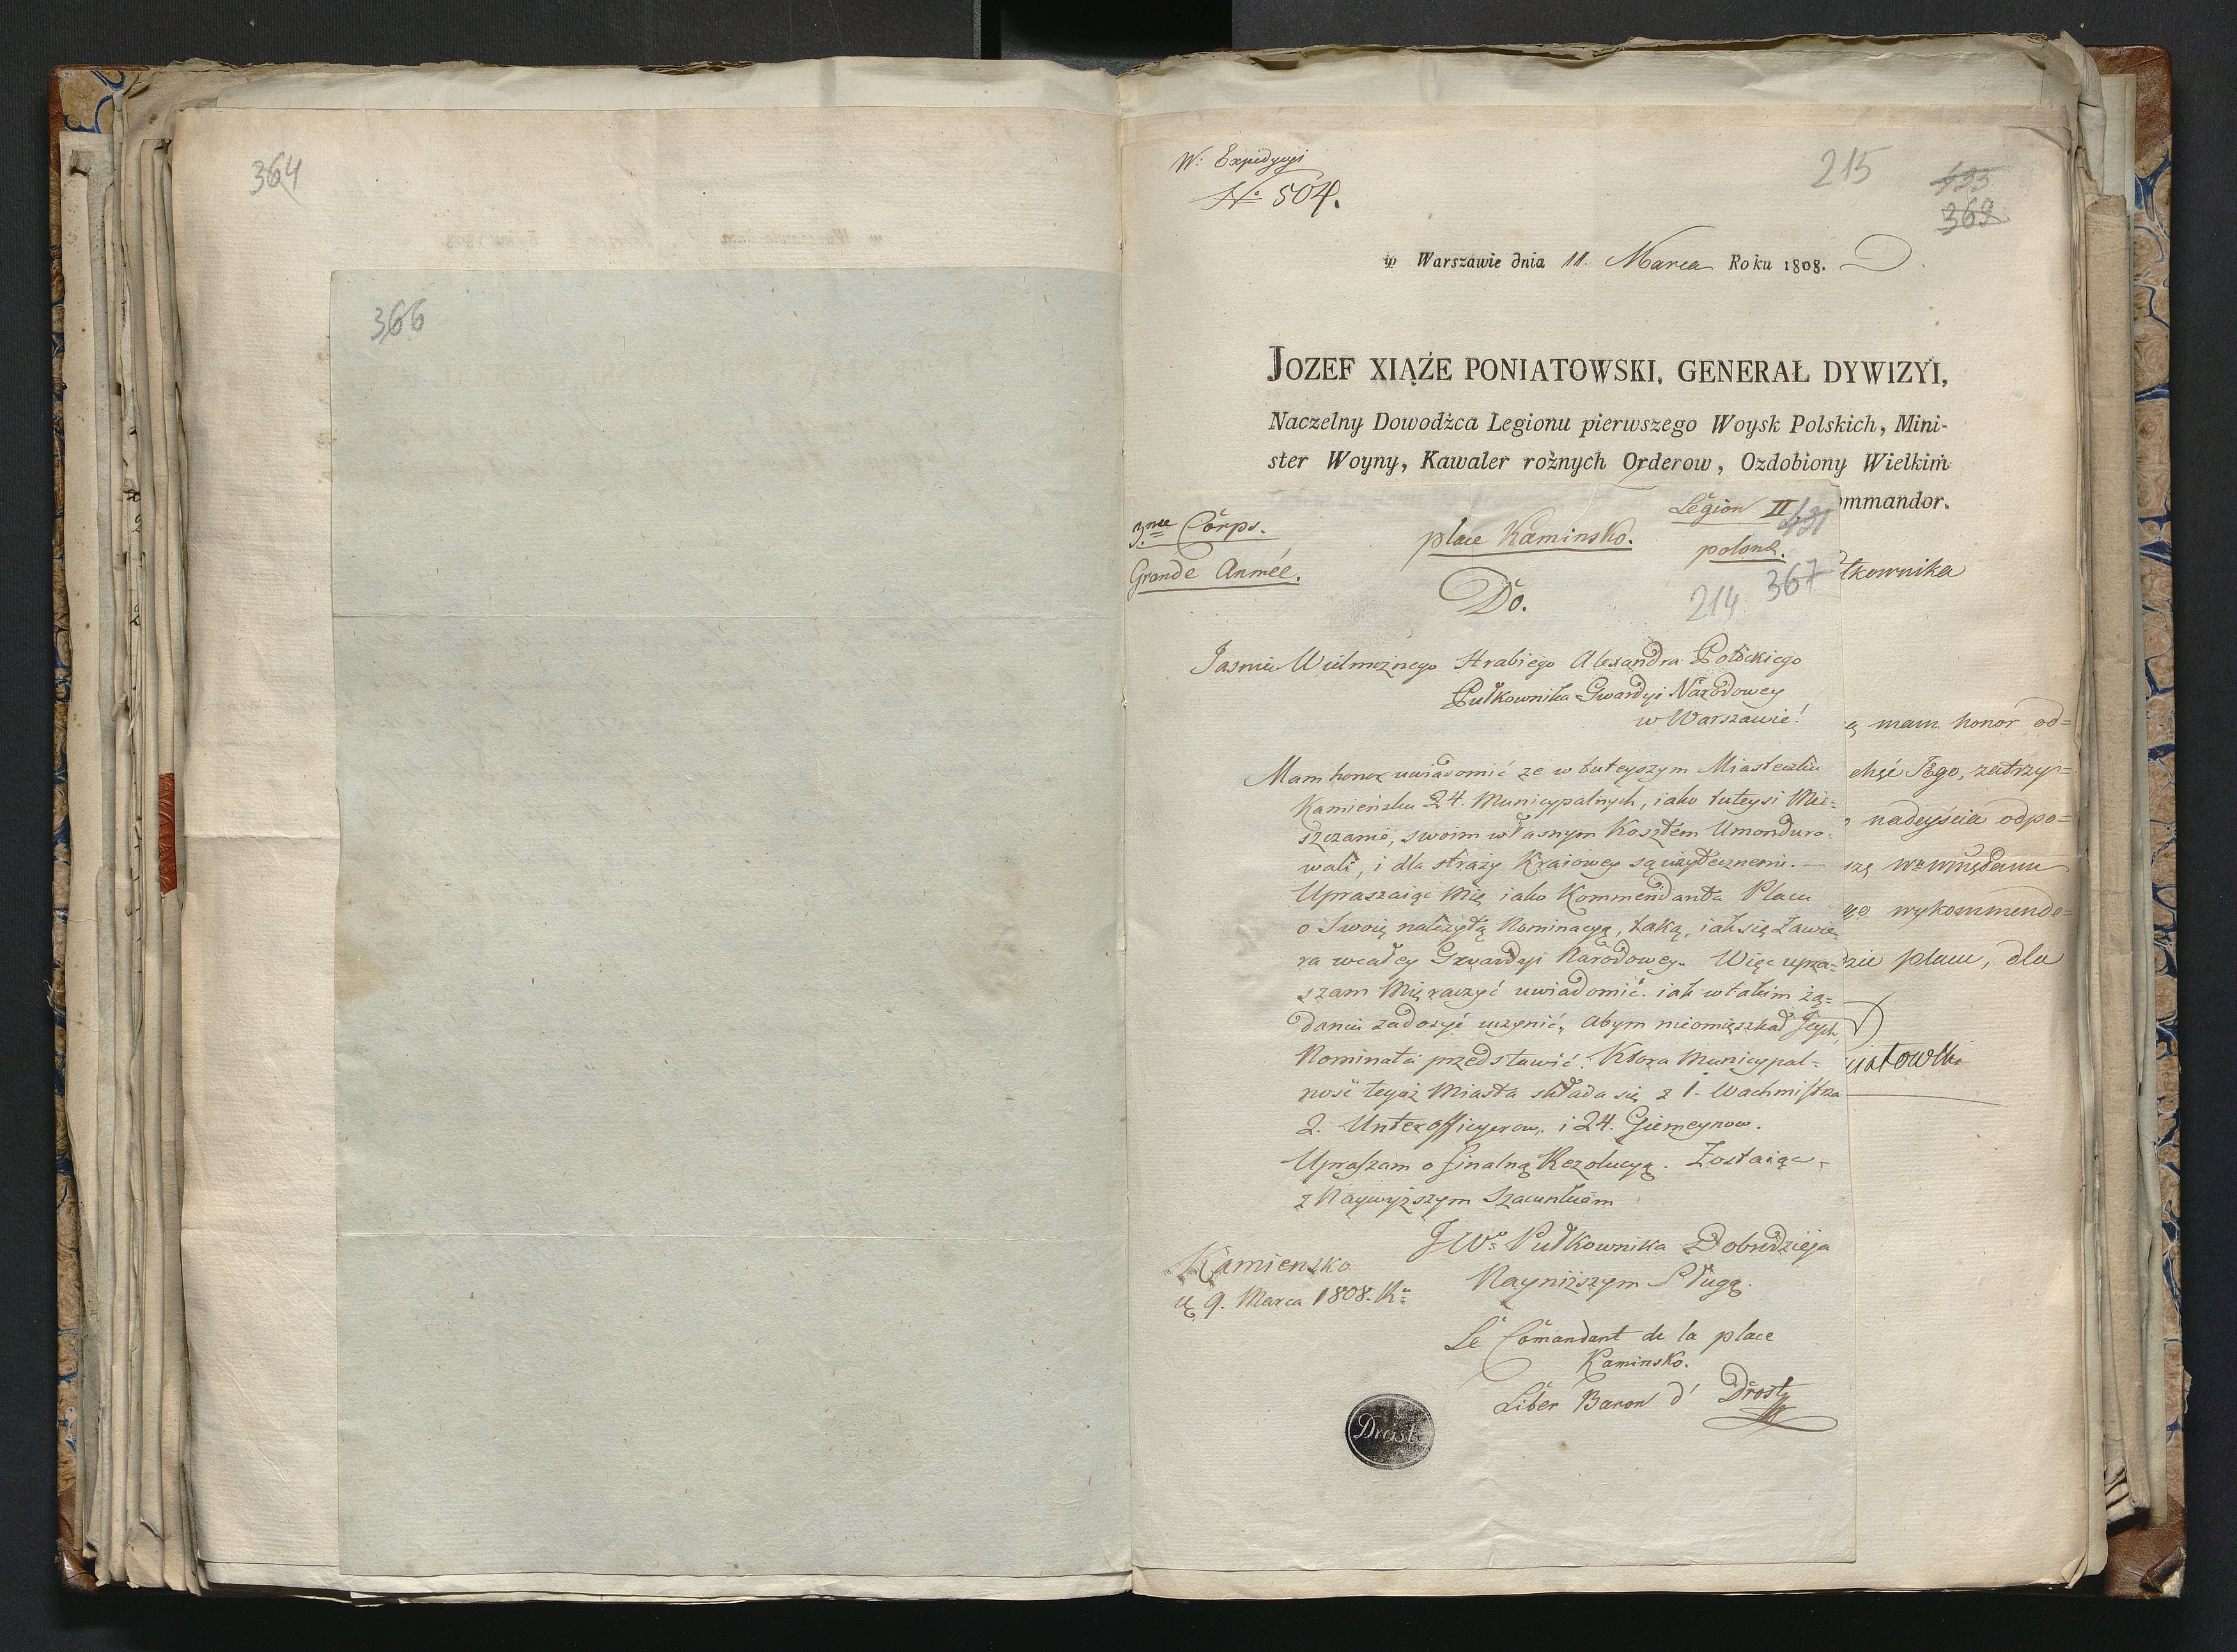 364
366
W: Expedycyi
No 504.
215
369
w Warszawie dnia 11. Marca Roku 1808.
JOZEF XIĄŻE PONIATOWSKI, GENERAŁ DYWIZYI,
Naczelny Dowodźca Legionu pierwszego Woysk Polskich, Mini-
ster Woyny, Kawaler rożnych Orderow, Ozdobiony Wielkim
ommandor.
tkownika
mam honor od=
chęć Jego, zatrzy=
nadeyścia odpo=
wykommende=
dzie placu, dla
iatowski
3.me Corps.
Grande Armée.
place Kaminsko.
Legion II
polona.
367
214
Do.
Jasnie Wielmożnego Hrabiego Alexandra Potockiego
Pułkownika Gwardyi Narodowey
w Warszawie!
Mam honor uwiadomić ze w tuteyszym Miasteczku
Kamieńsku 24. Municypalnych, iako tuteysi Mie=
szczanie, swoim własnym Kosztem Umonduro=
wali, i dla straży Kraiowey są użytecznemi. —
Upraszaiąc Mię iako Kommendanta Placu
o Swoią należytą Nominacyą, taką, iak się zawie=
ra wcałey Gwardyi Narodowey. Więc upra=
szam Mię raczyć uwiadomić. iak w takim żą=
daniu zadosyć uczynić, abym nieomięszkał Jeych
Nominata przedstawić. Ktora Municypal=
ność teyże Miasta składa się z 1. Wachmistrza
2. Unterofficyerow, i 24. Giemeynow.
Upraszam o finalną Rezolucyą. Zostaiąc
z Naywyższym Szacunkiem
JWo Pułkownika Dobrodzieja
Nayniższym Sługą.
Kamiensko
d. 9. Marca 1808. Ru
Le Comandant de la place
Kaminsko.
Liber Baron d' Drost
Drost